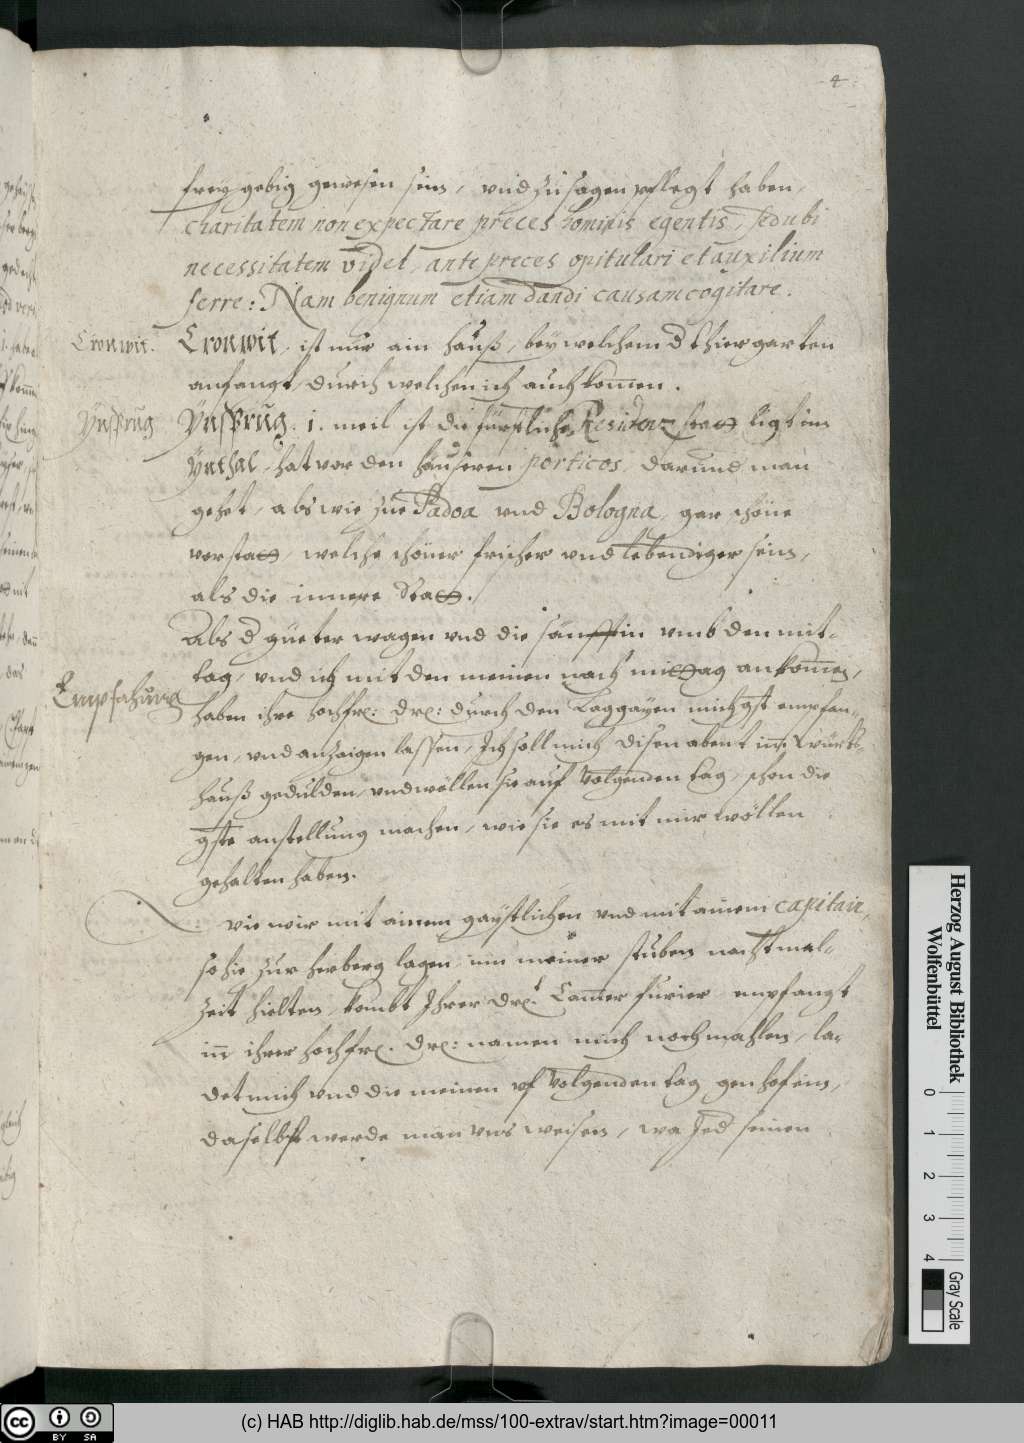 4
freÿgebig gewesen sein, vnd zusagen pflegt haben,
charitatem non expectare preces hominis egentis, sed ubi
necessitatem videt, ante preces opitulari et auxilium
ferre: Nam benignum etiam dandi causam cogitare.
Cronwit.
Cronwit, ist nur ain hauß, beÿ welchem d thiergarten
anfangt, durch welchen ich auch kommen.
Ynsprug
Ynsprug. 1. meil ist die fürstliche Residenz statt ligt im
Ÿnthal, hat vor den häuseren porticos, darund man
gehet, als wie zue Padoa vnd Bologna, gar schöne
vorstatt, welche schöner frischer vnd lebendiger sein,
als die innere Statt.
Als d güeter wagen vnd die sänfftin vmb den mit-
tag, vnd ich mit den meinen nach mittag ankommen,
Empfahung
haben ihre hochfr: Dr: durch den Laggaÿen mich gst empfan-
gen, vnd anzaigen lassen, Ich soll mich disen abent im Würts-
hauß gedulden, vnd wöllen sie auf volgenden tag, schon die
gste anstellung machen, wie sie es mit mir wöllen
gehalten haben.
wie wir mit ainem gaÿstlichen vnd mit ainem capitain,
so hie zur herberg lagen, inn meiner stuben nachtmal-
zeit hielten, kombt Ihrer Dr: Camer furier, empfangt
inn ihrer hochfr. Dr: namen mich nochmahlen, la-
det mich vnd die meinen vf volgenden tag gen hof ein,
daselbst werde man vns weisen, wa Jed seinen
Herzog August Bibliothek
Wolfenbüttel
0 1 2 3 4
Gray Scale
cc BY SA
(c) HAB http://diglib.hab.de/mss/100-extrav/start.htm?image=00011